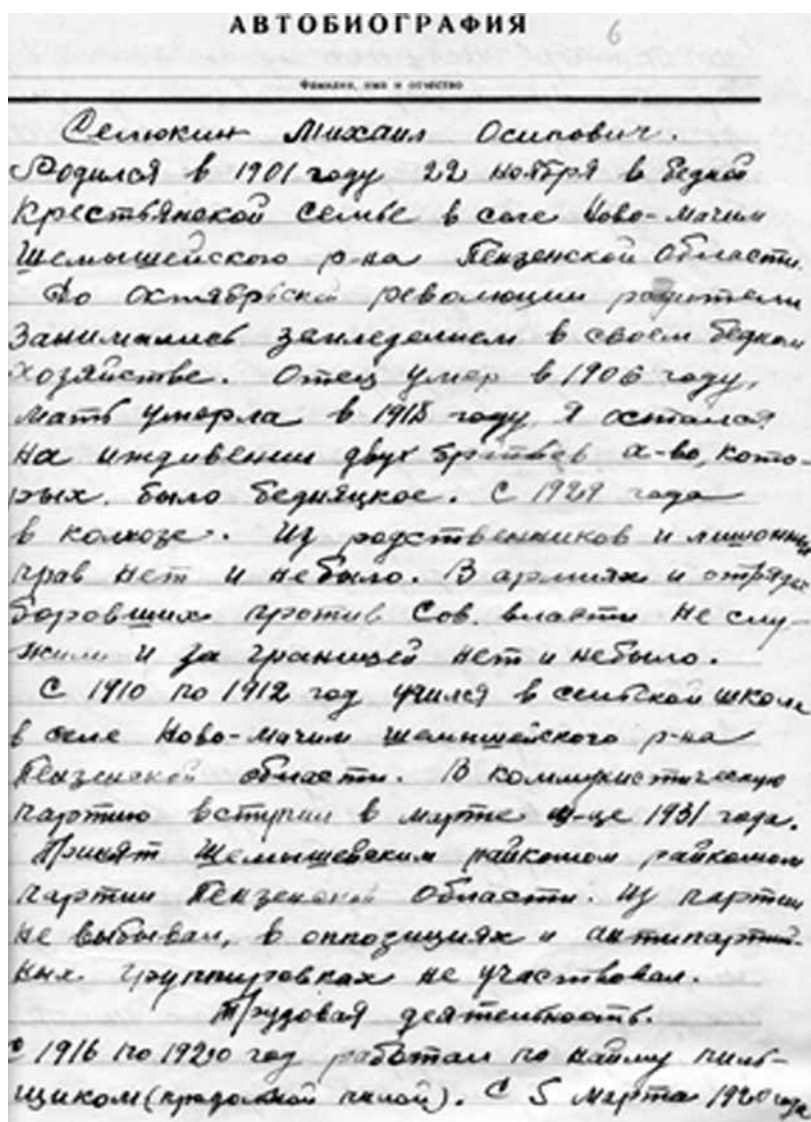 АВТОБИОГРАФИЯ
6
Фамилия, имя и отчество
Семокин Михаил Осипович.
Родился в 1901 году 22 ноября в бедной
крестьянской семье в селе Ново-Мачим
Шемышейского р-на Пензенской области.
До октябрьской революции родители
занимались земледелием в своем бедном
хозяйстве. Отец умер в 1906 году,
мать умерла в 1918 году, я остался
на иждивении двух братьев х-во, кото-
рых было бедняцкое. С 1929 года
в колхозе. Из родственников и лишонных
прав нет и небыло. В армиях и отрядах
боровших против Сов. власти не слу-
жили и за границей нет и небыло.
С 1910 по 1912 год учился в сельской школе
в селе Ново-Мачим Шемышейского р-на
Пензенской области. В коммунистическую
партию вступил в марте м-це 1931 года.
Принят Шемышевским райкомом райкомом
партии Пензенской области. Из партии
не выбывал, в оппозициях и антипартий-
ных группировках не участвовал.
Трудовая деятельность.
С 1916 по 1920 год работал по найму пиль-
щиком (продольной пилой). С 5 марта 1920 года